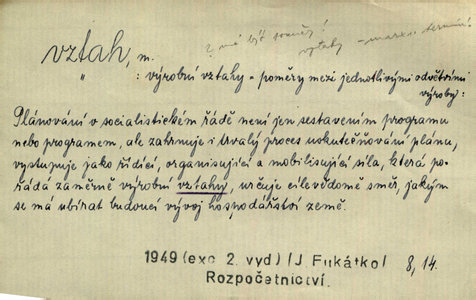 vztah, m. 2 má být poměry! vztahy - marx. termín!
" : výrobní vztahy = poměry mezi jednotlivými odvětvími
výroby:
Plánování v socialistickém řádě není jen sestavením programu
nebo programem, ale zahrnuje i trvalý proces uskutečňování plánu,
vystupuje jako řídící, organisující a mobilisující síla, která po-
řádá záměrně výrobní vztahy, určuje cílevědomě směr, jakým
se má ubírat budoucí vývoj hospodářství země.
1949 (exc 2. vyd) (J Fukátko) 8, 14.
Rozpočetnictví.